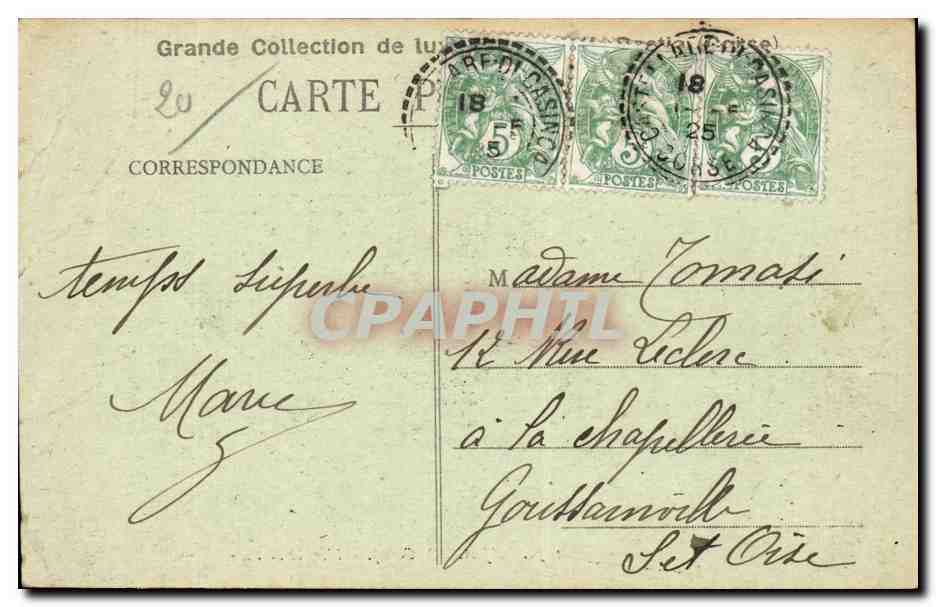 Grande Collection de lux
CARTE P
20
CORRESPONDANCE
ARE DI CASINCA
18
5
5
POSTES
POSTES
POSTES
DI CASINCA
18
25
CORSE
temps superbe
Marc
CPAPHIL
Madame Tomasi
12 Rue Leclerc
à la chapellerie
Goussainville
S et Oise